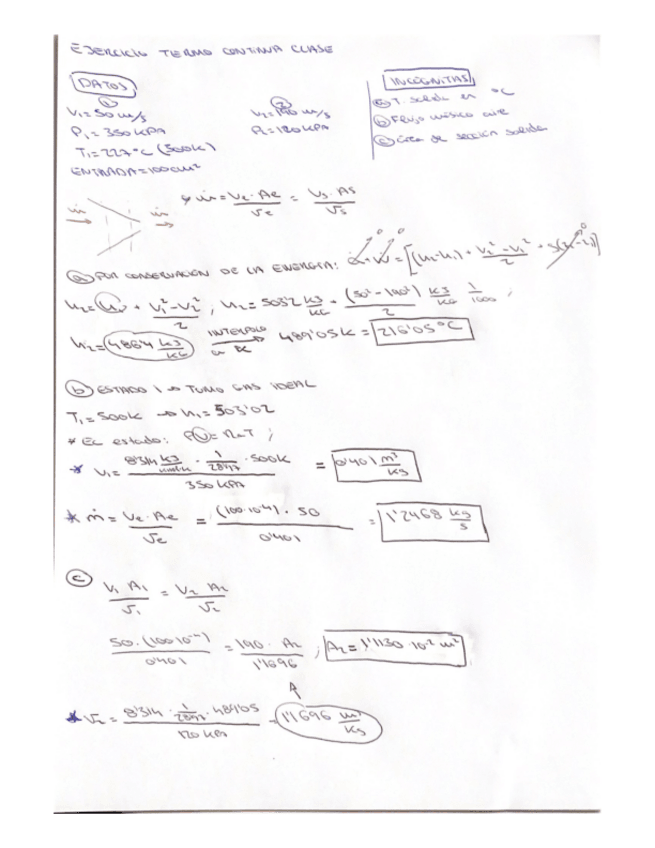 EJERCICIO TERMO CONTINUA CLASE
DATOS
INCOGNITAS
① ②
V₁=50 m/s V₂=190 m/s
P₁=350 kPa P₂=120 kPa
T₁=227°C (500K)
ENTRADA=100cm²
ⓐ T. salida en °C
ⓑ Flujo másico aire
ⓒ área de sección salida
ṁ ṁ
* ṁ = Ve·Ae/νe = Vs·As/νs
ⓐ POR CONSERVACIÓN DE LA ENERGÍA: Q̇+Ẇ = [(h₂-h₁) + (V₂²-V₁²)/2 + g(z₂-z₁)]
h₂ = h₁ + (V₁²-V₂²)/2 ; h₂ = 503'2 kJ/kg + (50²-190²)/2 kJ/kg 1/1000 ;
h₂ = 486'4 kJ/kg INTERPOLO 489'05K = 216'05°C
ⓑ ESTADO 1 → TOMO GAS IDEAL
T₁=500K → h₁=503'02
* Ec estado: Pν=RT ;
* ν₁ = (8'314 · 1/28'97 · 500K)/350 kPa = 0'401 m³/kg
* ṁ = Ve·Ae/νe = (100·10⁻⁴)·50/0'401 = 1'2468 kg/s
ⓒ V₁A₁/ν₁ = V₂A₂/ν₂
50·(100·10⁻⁴)/0'401 = 190·A₂/1'1696 ; A₂=1'1130·10⁻² m²
* ν₂ = (8'314 · 1/28'97 · 489'05)/120 kPa = 1'1696 m³/kg